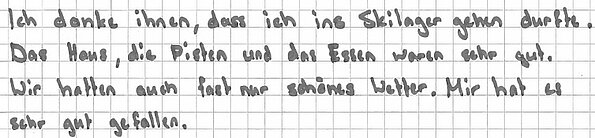 Ich danke ihnen, dass ich ins Skilager gehen durfte.
Das Haus, die Pisten und das Essen waren sehr gut.
Wir hatten auch fast nur schönes Wetter. Mir hat es
sehr gut gefallen.